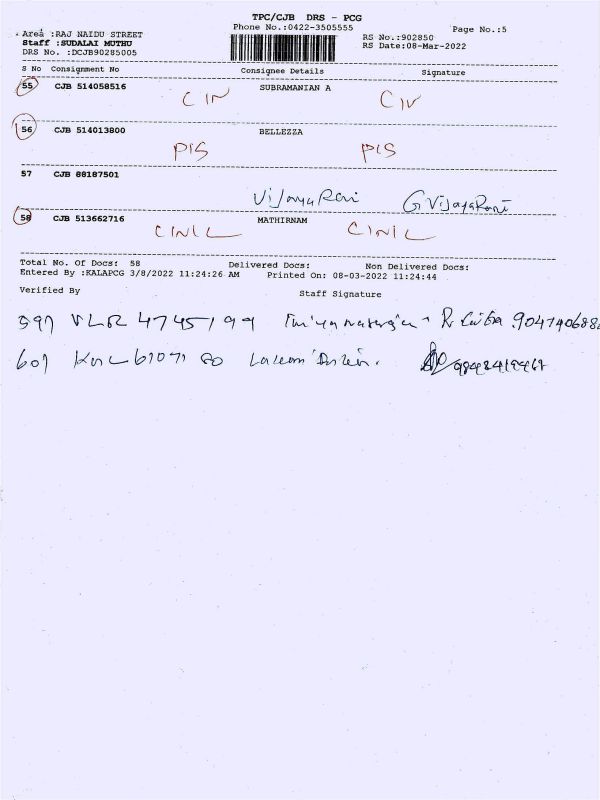 TPC/CJB DRS - PCG
Phone No.:0422-3505555
Page No.:5
Area :RAJ NAIDU STREET
Staff :SUDALAI MUTHU
DRS No. :DCJB90285005
RS No.:902850
RS Date:08-Mar-2022
S No Consignment No Consignee Details Signature
55 CJB 514058516 SUBRAMANIAN A
56 CJB 514013800 BELLEZZA
PIS PIS
57 CJB 88187501
VijayaRani G VijayaRani
58 CJB 513662716 MATHIRNAM
Total No. Of Docs: 58 Delivered Docs: Non Delivered Docs:
Entered By :KALAPCG 3/8/2022 11:24:26 AM Printed On: 08-03-2022 11:24:44
Verified By Staff Signature
59) VLR 4745199
60)